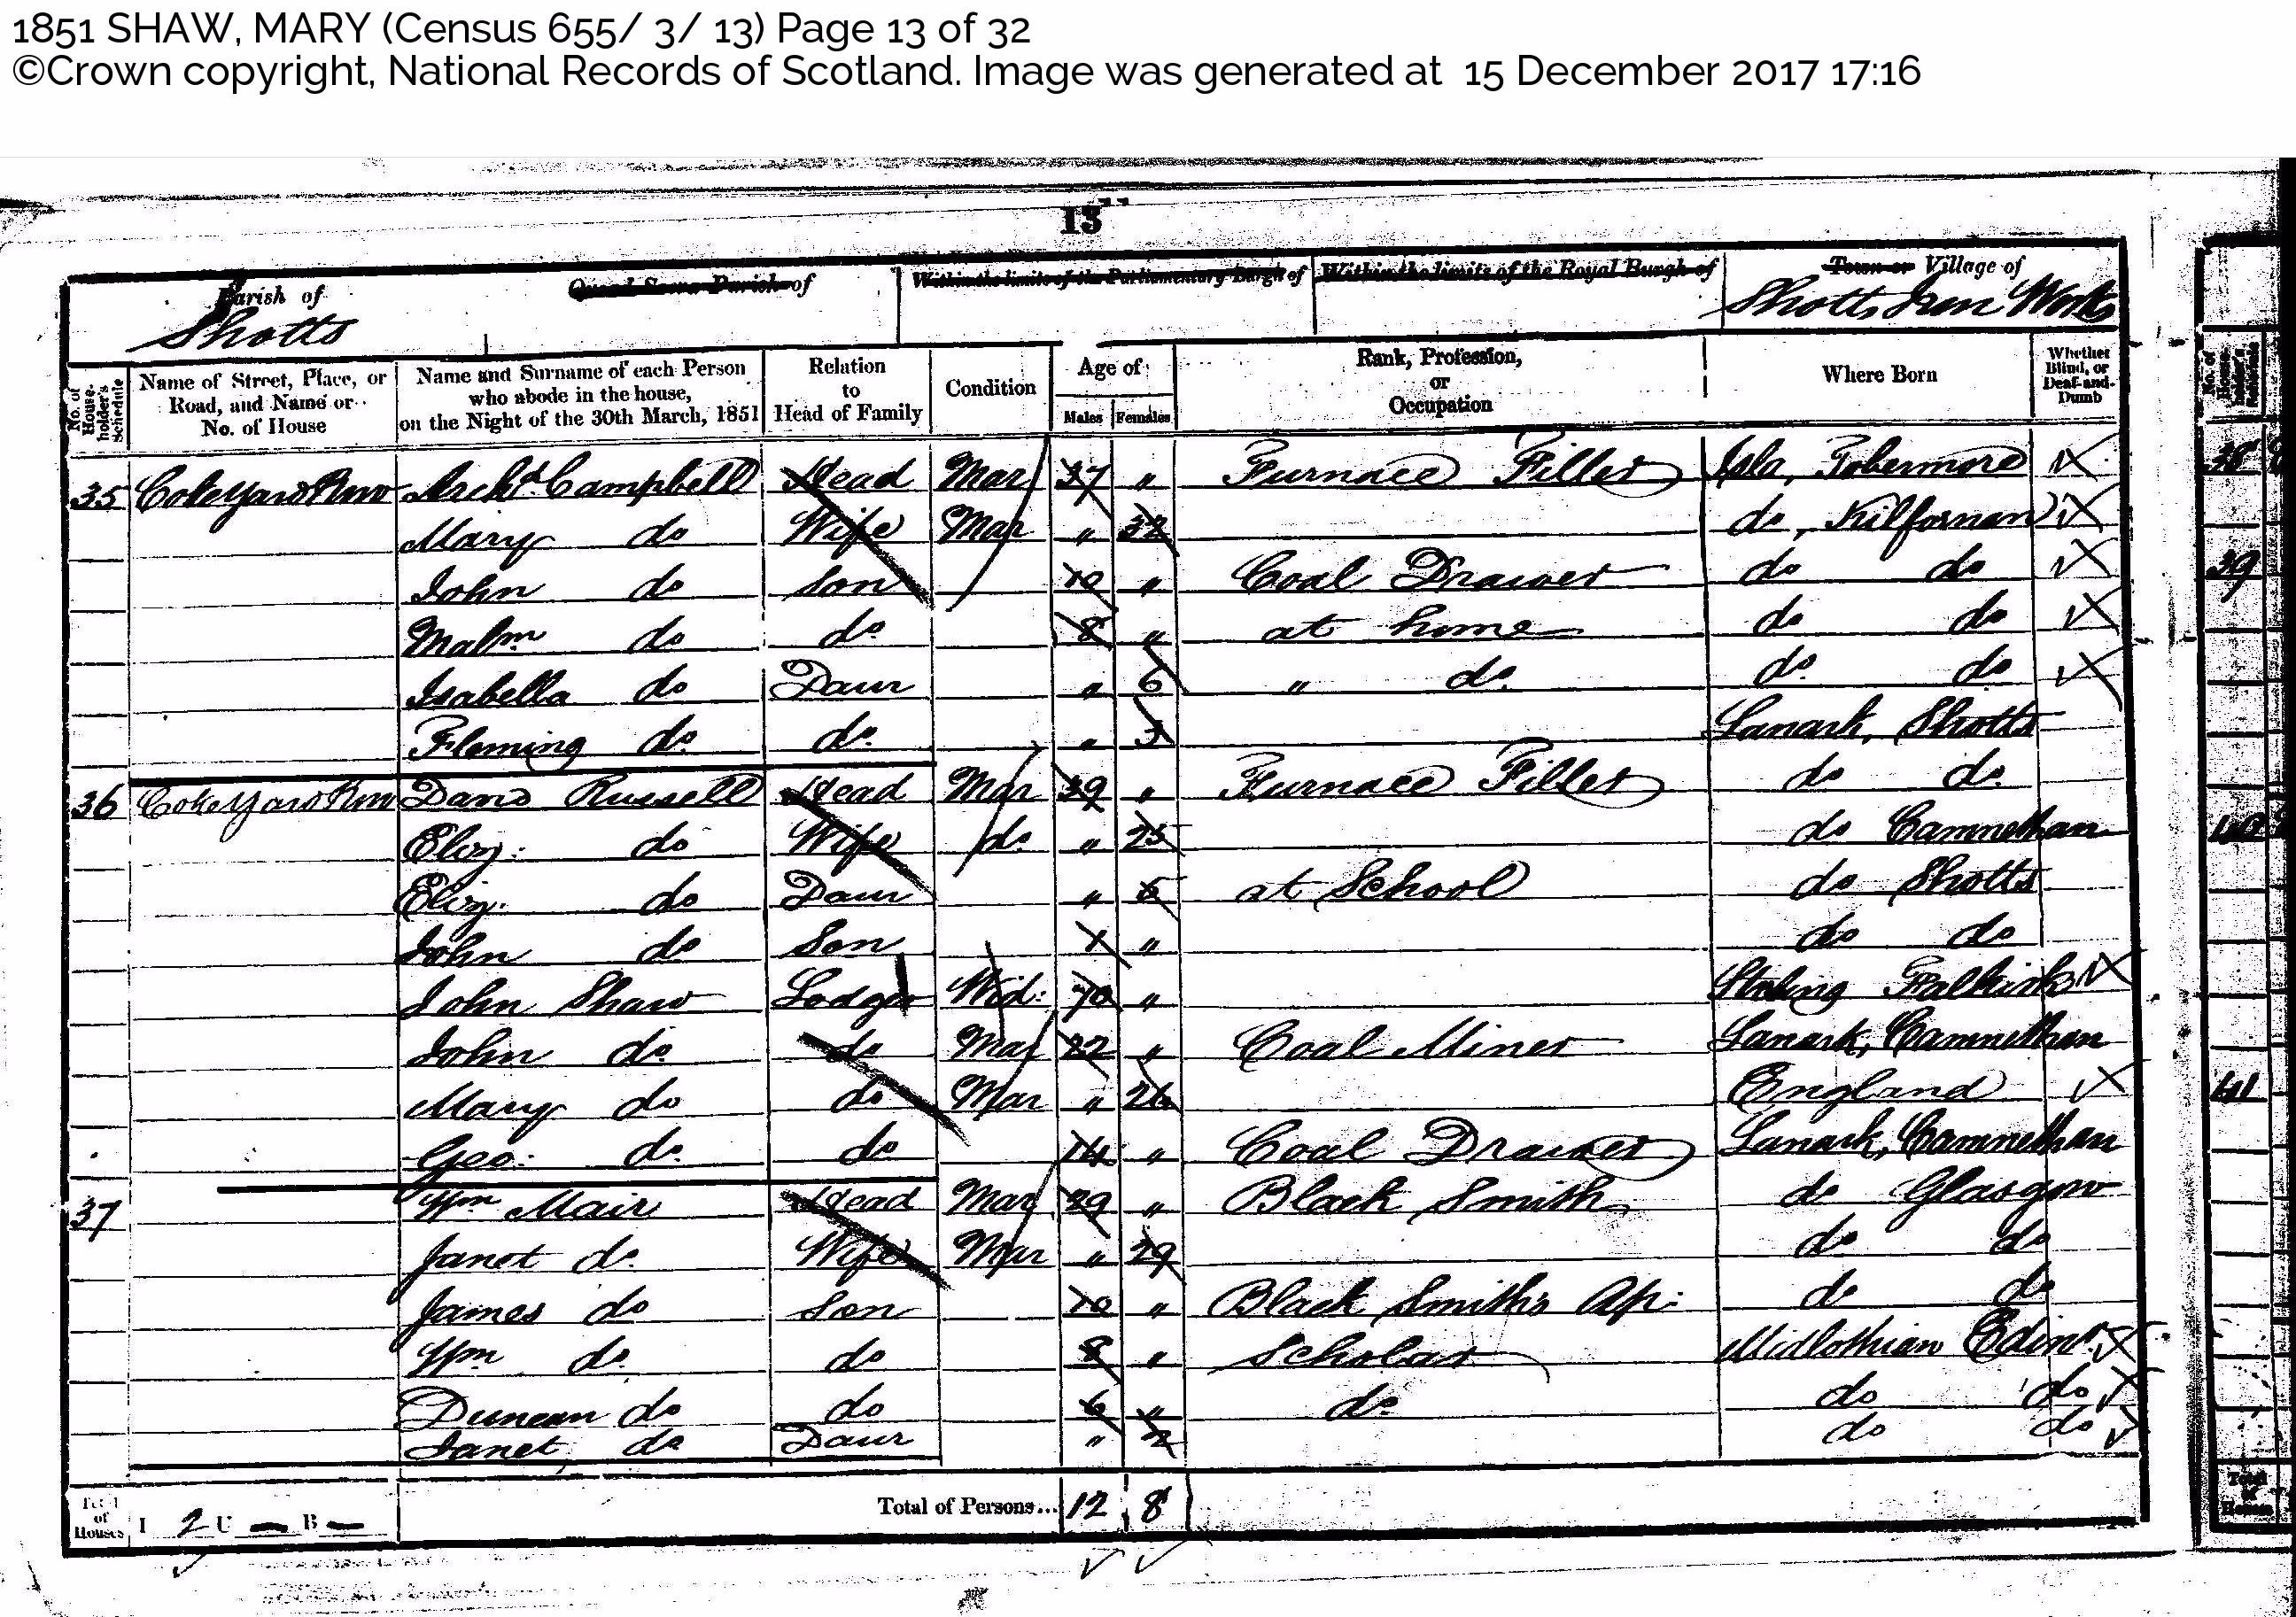 1851 SHAW, MARY (Census 655/ 3/ 13) Page 13 of 32
©Crown copyright, National Records of Scotland. Image was generated at 15 December 2017 17:16
13
Parish of
Quoad Sacra Parish of
Within the limits of the Parliamentary Burgh of
Within the limits of the Royal Burgh of
Town or Village of
Shotts
Shotts Iron Works
No. of House-holder's Schedule
Name of Street, Place, or Road, and Name or No. of House
Name and Surname of each Person who abode in the house, on the Night of the 30th March, 1851
Relation to Head of Family
Condition
Age of
Males Females
Rank, Profession, or Occupation
Where Born
Whether Blind, or Deaf-and-Dumb
35 Coke yard Row Archd. Campbell Head Mar 37 " Furnace Filler Isla, Tobermore
Mary do Wife Mar " 32 do, Kilfornan
John do Son 10 " Coal Drawer do do
Malm. do do 8 " at home do do
Isabella do Daur " 6 " do. do. do
Fleming do do. " 3 Lanark, Shotts
36 Coke Yard Row David Russell Head Mar 39 " Furnace Filler do do.
Eliz: do Wife do. " 25 do Camnethan
Eliz. do Daur " 5 at School do Shotts
John do Son 1 " do do
John Shaw Lodger Wid: 70 " Stirling Falkirk
John do. do Mar 22 " Coal Miner Lanark, Camnethan
Mary do do Mar " 26 England
Geo: do. do 14 " Coal Drawer Lanark, Camnethan
37 Wm Mair Head Mar 29 " Black Smith do Glasgow
Janet do. Wife Mar " 29 do do
James do Son 10 " Black Smith's Ap: do do
Wm do. do 8 " Scholar Midlothian Edinr.
Duncan do do 6 " do. do do
Janet, do Daur " 2 do do
Total of Houses I 2 U — B —
Total of Persons... 12 8
No. of House-holder's Schedule
38
39
40
41
Total of Houses